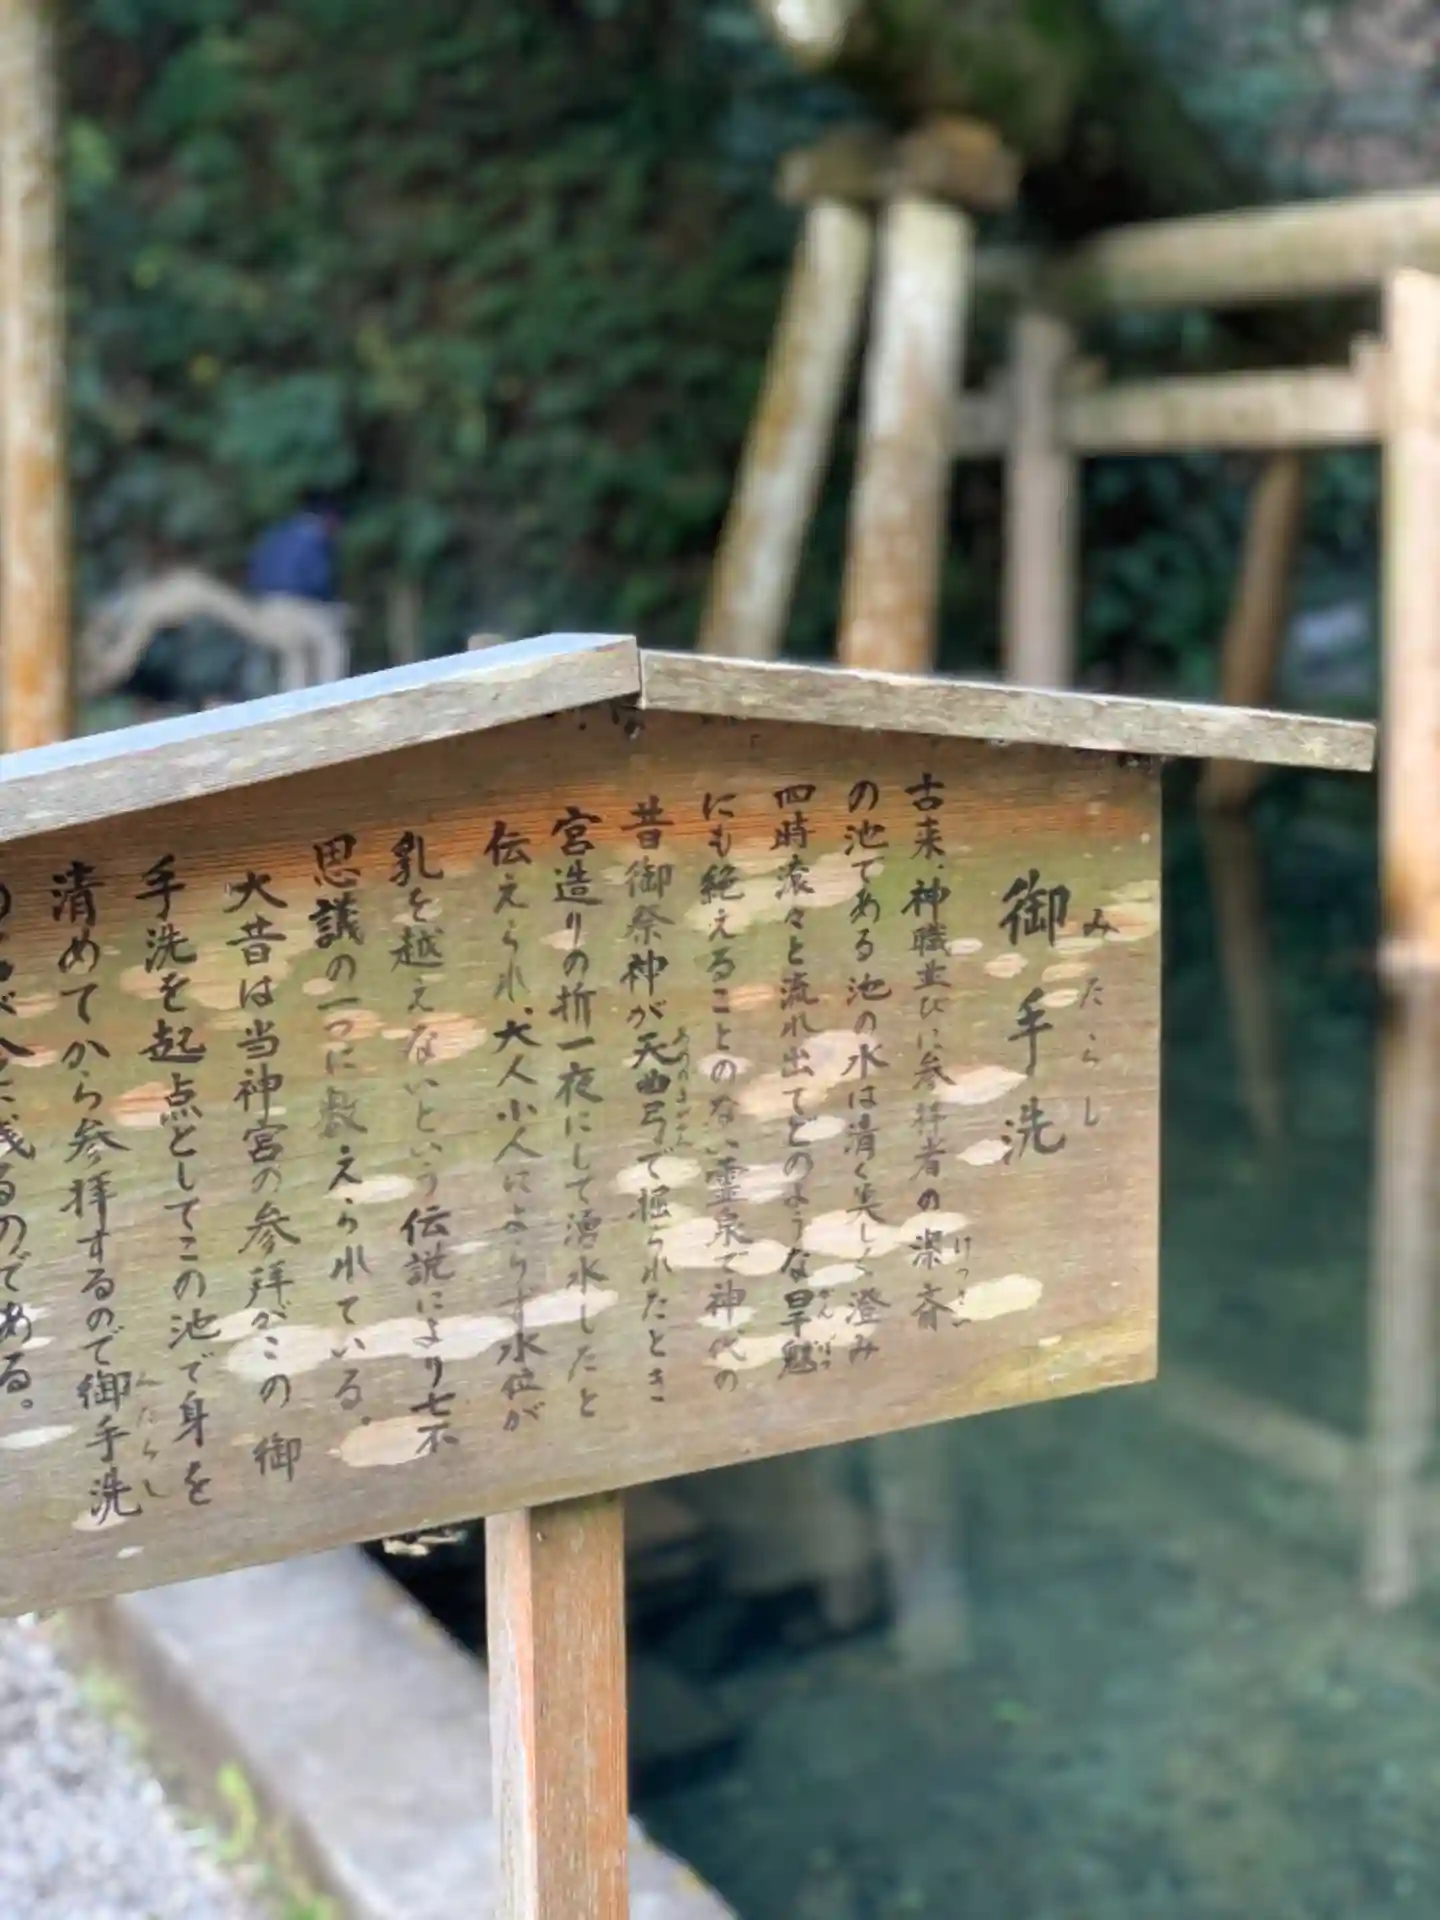 御手洗
みたらし
古来、神職並びに参拝者の潔斎
けっさい
の池である池の水は清く美しく澄み
四時滾々と流れ出てどのような旱魃
かんばつ
にも絶えることのない霊泉で神代の
昔御祭神が天曲弓で掘られたとき
宮造りの折一夜にして湧水したと
伝えられ、大人小人によらず水位が
乳を越えないという伝説により七不
思議の一つに数えられている。
大昔は当神宮の参拝がこの御
手洗を起点としてこの池で身を
清めてから参拝するので御手洗
みたらし
残るのである。